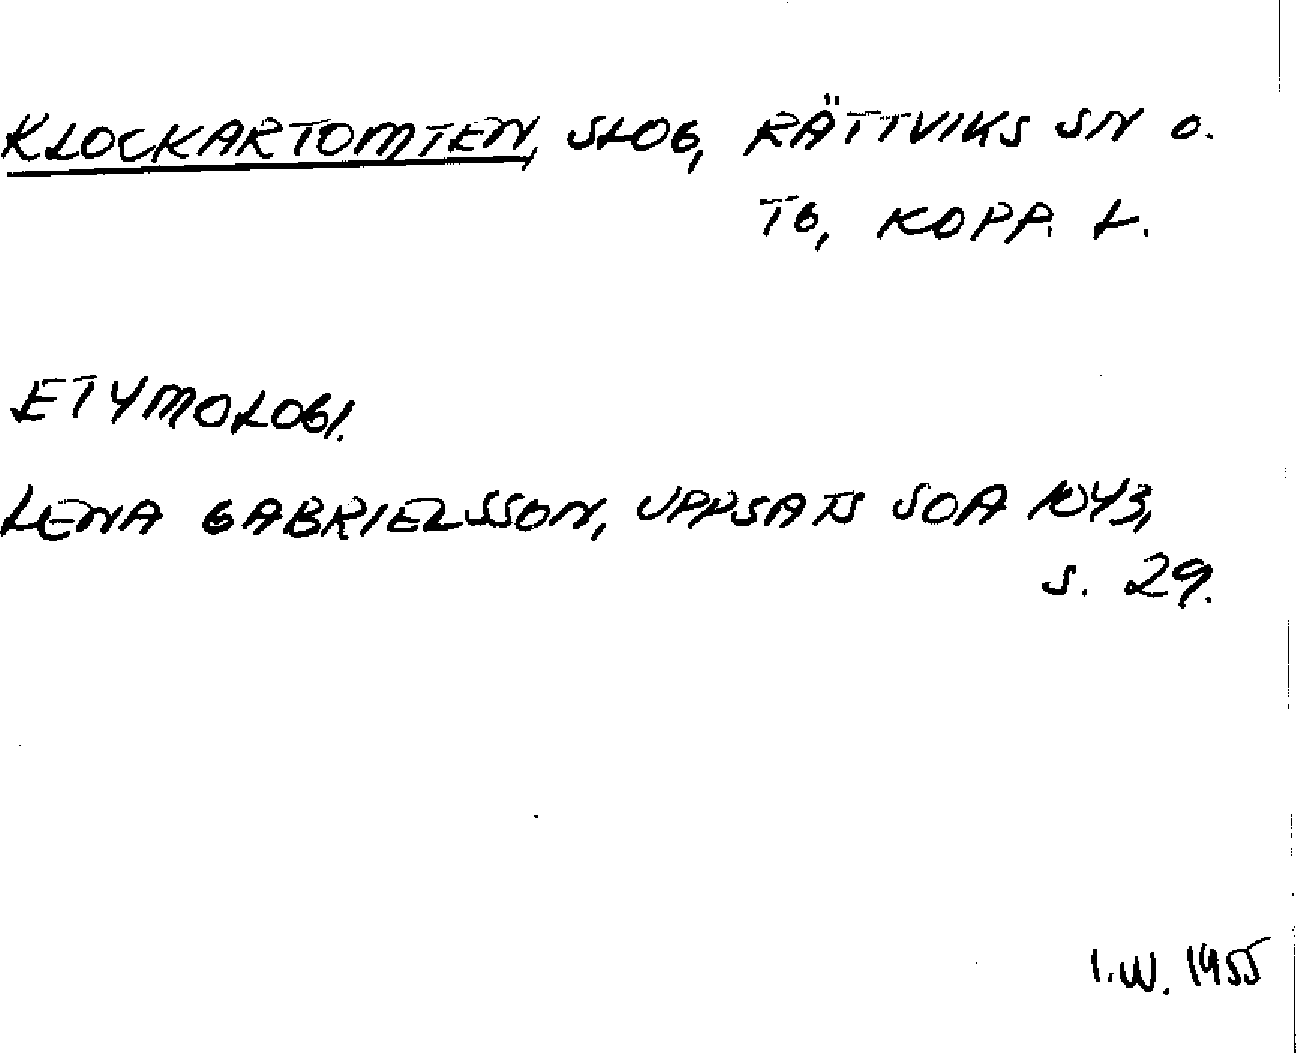 KLOCKARTOMTEN, SLOG, RÄTTVIKS SN O.
TG, KOPP. L.
ETYMOLOGI.
LENA GABRIELSSON, UPPSATS SOA 1043,
S. 29.
I.W. 1955